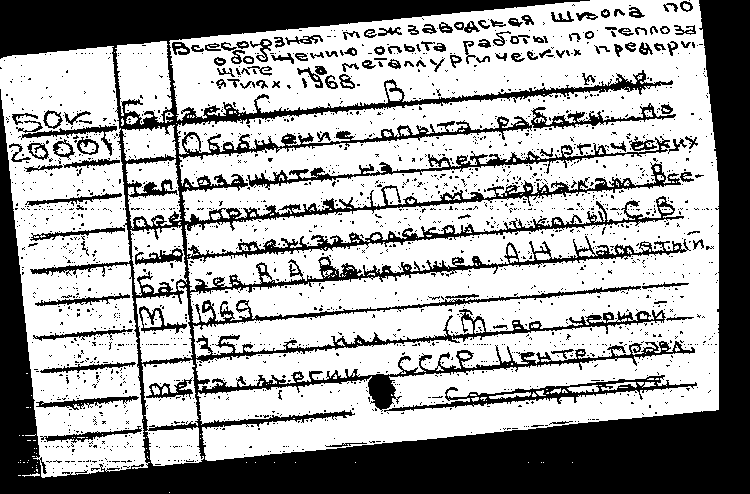 Всесоюзная межзаводская школа по
обобщению опыта работы по теплоза-
щите на металлургических предпри-
ятиях. 1968.
50к Бараев, Г В и др.
20001 Обобщение опыта работы по
теплозащите на металлургических
предприятиях (По материалам Все-
союз. межзаводской школы) С.В.
Бараев, В.А. А.Н. Намятый.
М. 1969.
35с. с илл. (М-во черной
металлургии СССР. Центр. правл.
См. след. карт.